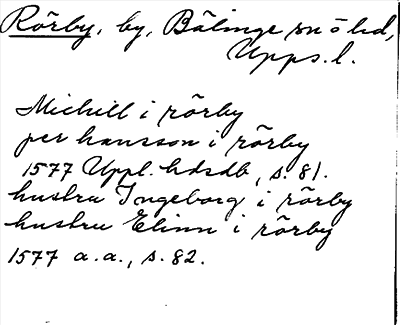 Rörby, by, Bälinge sn o hd,
Upps. l.
Michill i rörby
per hansson i rörby
1577 Uppl. hdsdb, s. 81.
hustru Ingeborg i rörby
hustru Elinn i rörby
1577 a.a., s. 82.